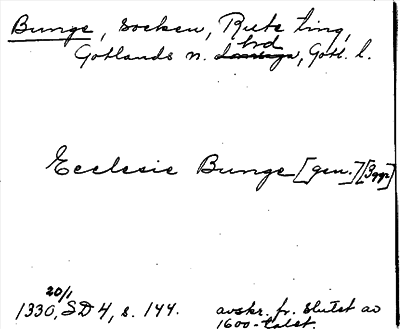 Bunge, socken, Rute ting,
Gotlands n. hd, Gotl. l.
Ecclesie Bunge [gen.] [3 ggr]
1330 20/1, SD 4, s. 144.
avskr. fr. slutet av
1600-talet.